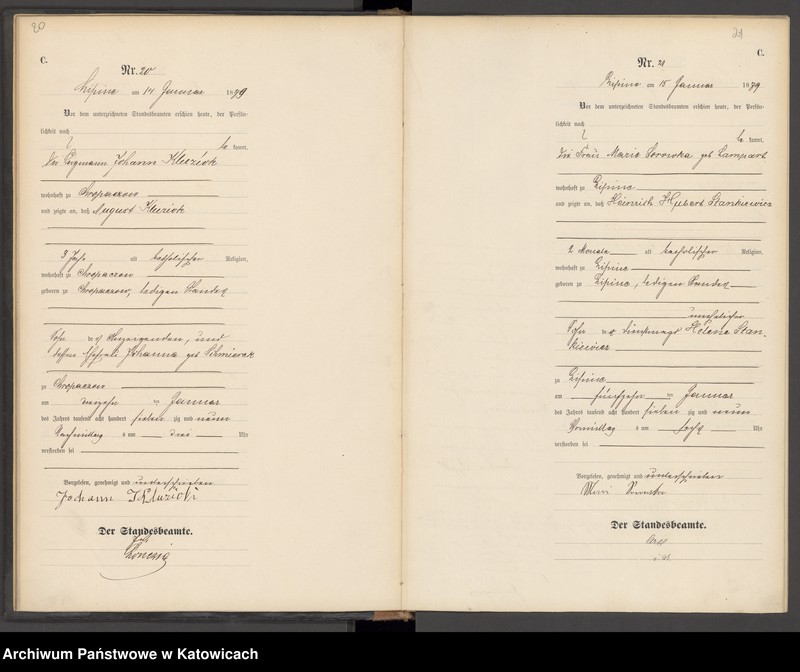 20
C.
Nr. 20
Lipine am 14 Januar 1879
Vor dem unterzeichneten Standesbeamten erschien heute, der Persön-
lichkeit nach
be kannt,
Der Bergmann Johann Kluziok
wohnhaft zu Chropaczow
und zeigte an, daß August Kluziok
3 Jahr alt katholischer Religion,
wohnhaft zu Chropaczow
geboren zu Chropaczow, ledigen Standes
Sohn des Anzeigenden, und
dessen Ehefrau Johanna geb
zu Chropaczow
am vierzehn ten Januar
des Jahres tausend acht hundert sieben zig und neun
Nachmittag s um drei Uhr
verstorben sei
Vorgelesen, genehmigt und unterschrieben
Johann Kluziok
Der Standesbeamte.
21
C.
Nr. 21
Lipine am 15 Januar 1879
Vor dem unterzeichneten Standesbeamten erschien heute, der Persön-
lichkeit nach
be kannt,
die Frau Marie geb Lampart
wohnhaft zu Lipine
und zeigte an, daß Heinrich Hubert Stankiewicz
2 Monate alt katholischer Religion,
wohnhaft zu Lipine
geboren zu Lipine, ledigen Standes
unehelicher
Sohn der Dienstmagd Helene Stan-
kiewicz
zu Lipine
am fünfzehn ten Januar
des Jahres tausend acht hundert sieben zig und neun
Vormittag s um sechs Uhr
verstorben sei
Vorgelesen, genehmigt und unterschrieben
Der Standesbeamte.
Archiwum Państwowe w Katowicach